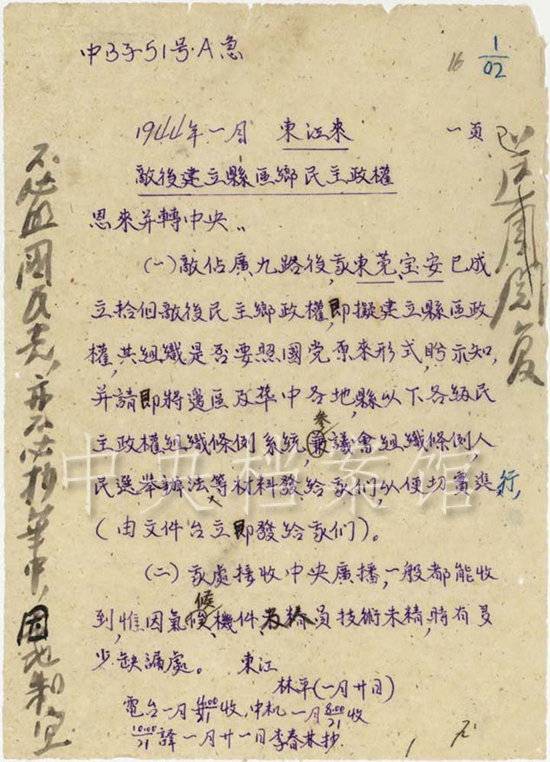 中346·51号·A急
16
1/02
1944年一月 東江來 一頁
敵後建立縣區鄉民主政權
恩來并轉中央：
(一)敵佔廣九路後，我東莞、宝安已成
立拾個敵後民主鄉政權，即擬建立縣區政
權，其組織是否要照國党原來形式，盼示知，
并請即將邊區及華中各地縣以下各級民
主政權組織條例系統，参議會組織條例，人
民選举辦法等材料發給我们，以便切實進行，
(由文件台立即發給我们)。
(二)我處接收中央廣播，一般都能收
到，惟因氣候、機件、人員技術未精，時有多
少缺漏處。 東江
林平(一月廿日)
電台一月 收，中机一月 收
10:00/21譯一月廿一日李春林抄
不必照國民党，亦不必抄華中，因地制宜
中央档案馆